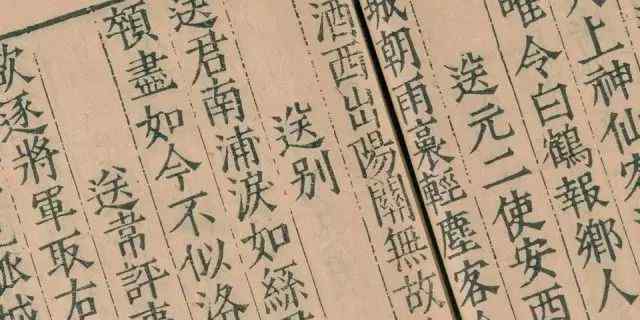 上神仙客
唯令白鶴報鄉人
送元二使安西
城朝雨裛輕塵客
酒西出陽關無故
送别
送君南浦淚如絲
顇盡如今不似洛
送韋評事
欲逐將軍取右
孤城